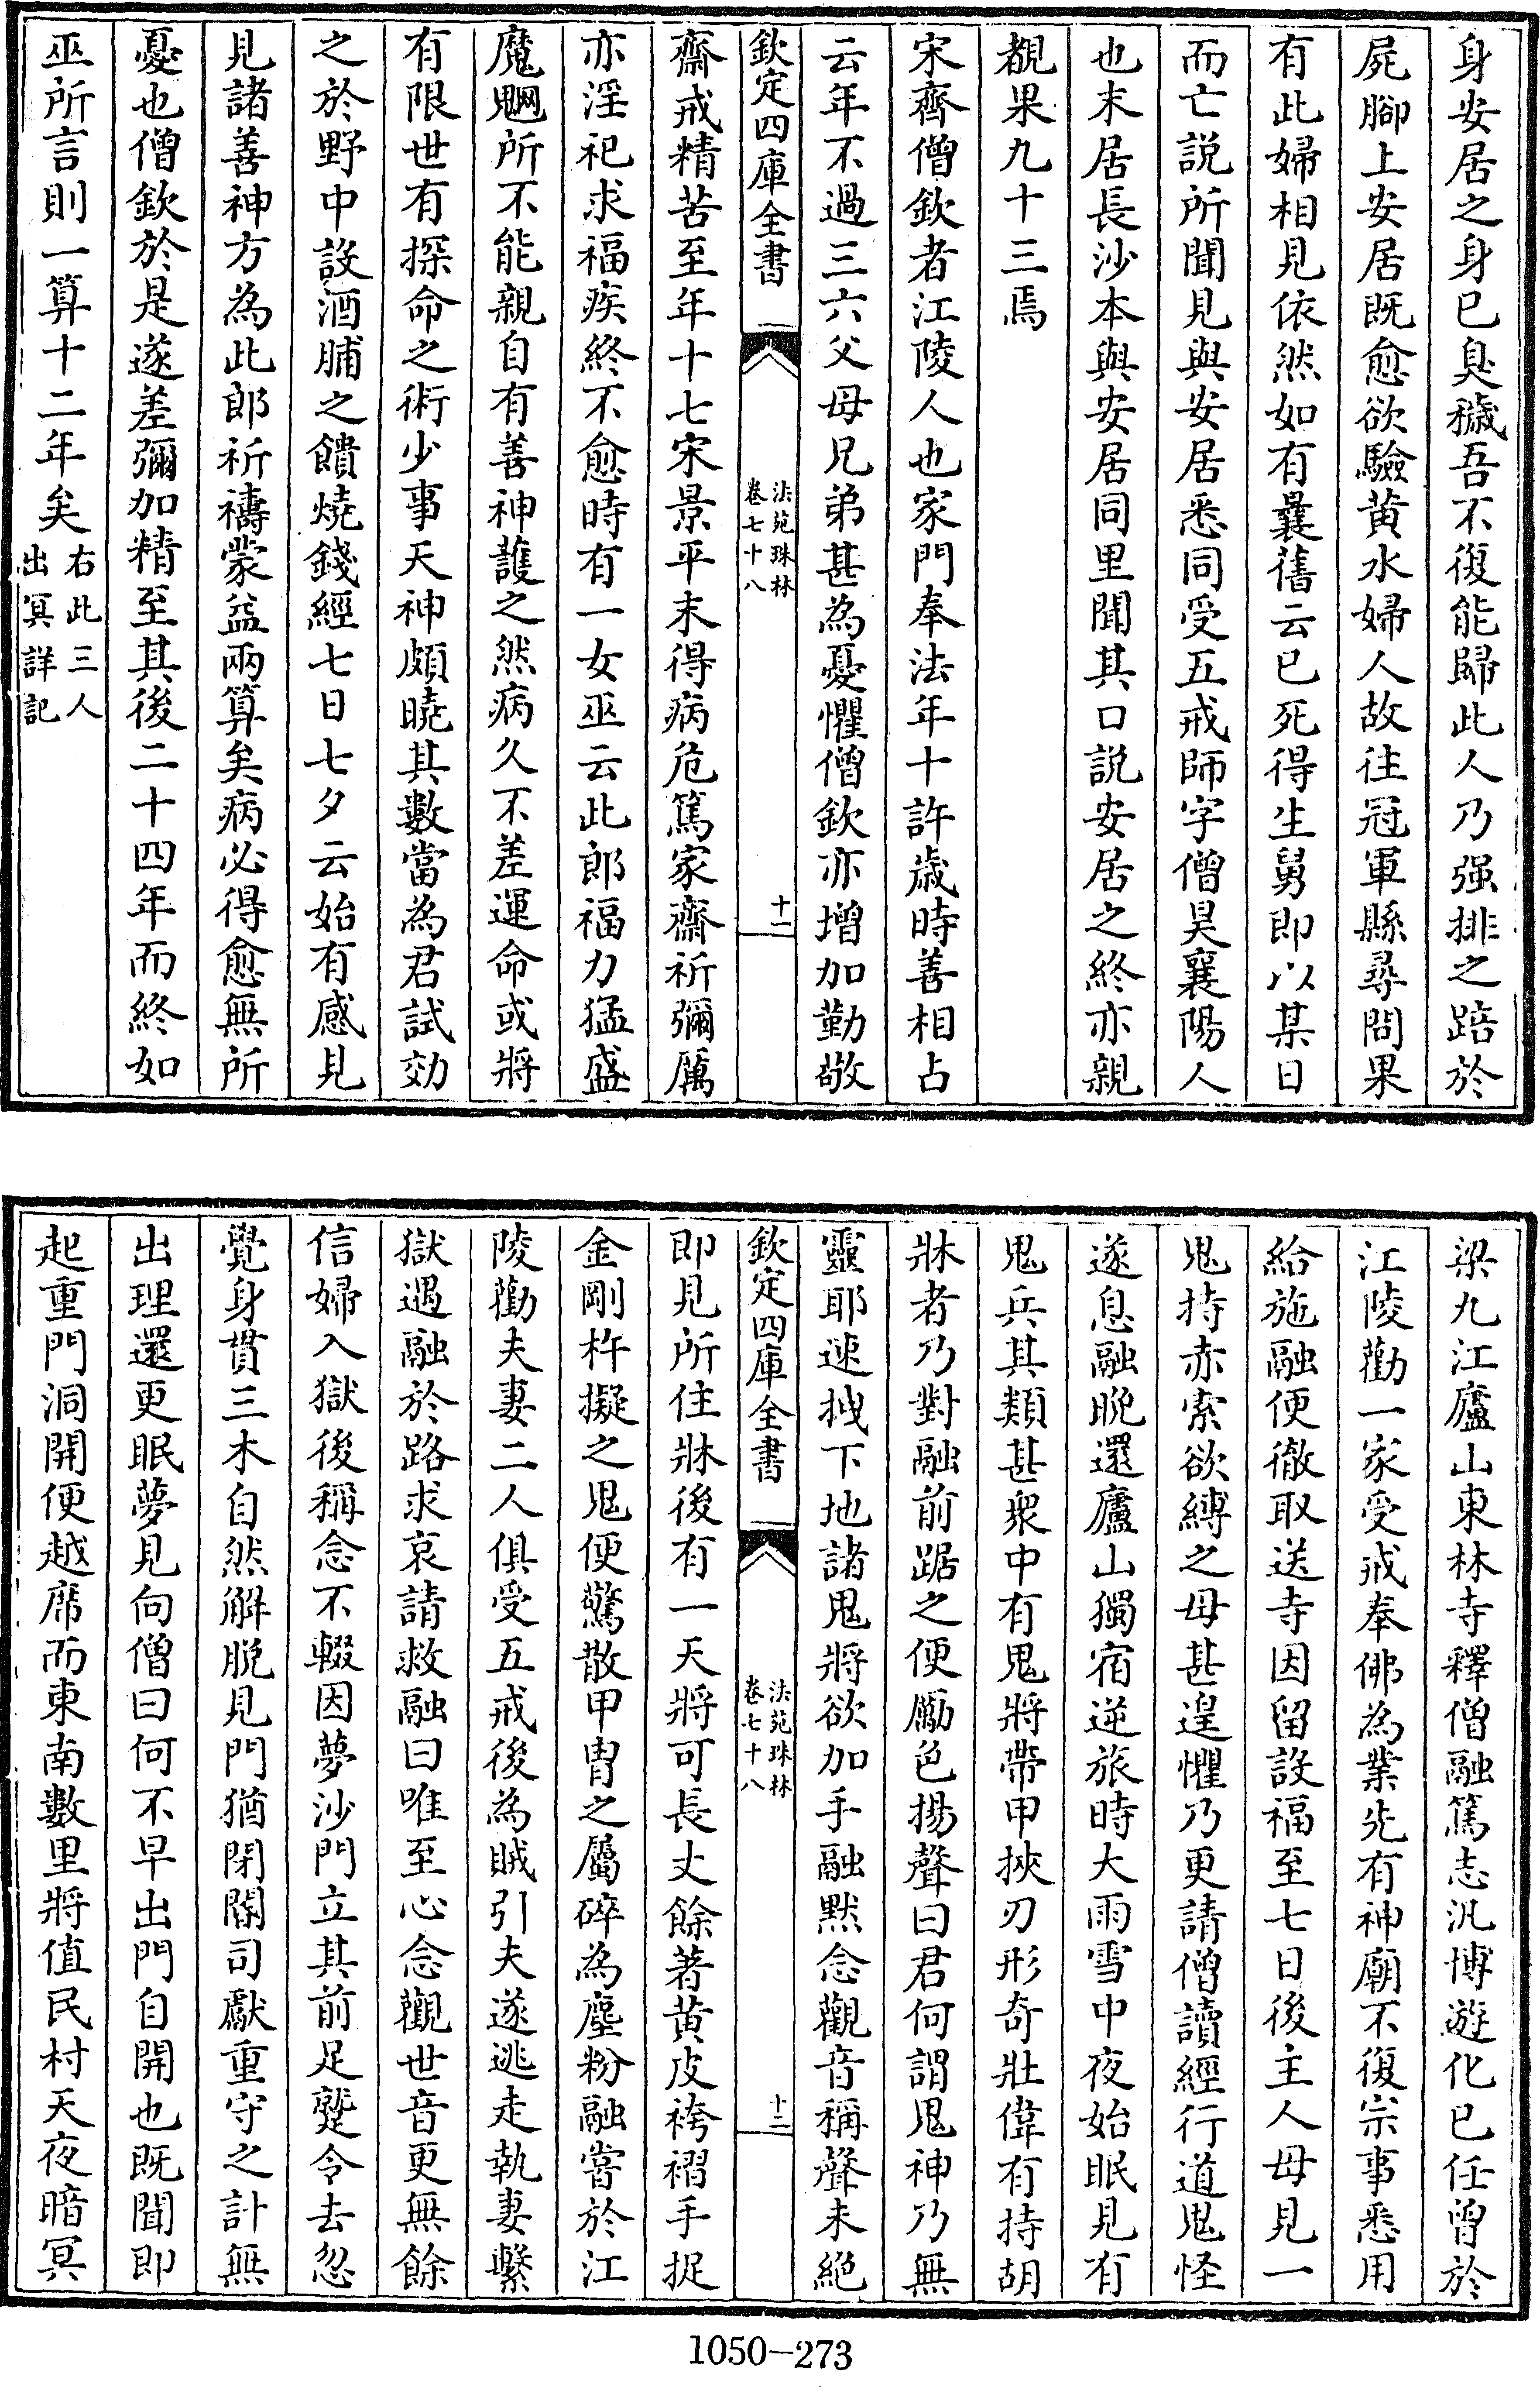 身安居之身已臭穢吾不復能歸此人乃强排之踣於
屍腳上安居既愈欲驗黄水婦人故往冠軍縣尋問果
有此婦相見依然如有曩舊云已死得生舅即以某日
而亡説所聞見與安居悉同受五戒師字僧昊襄陽人
也末居長沙本與安居同里聞其口説安居之終亦親
覩果九十三焉
宋齊僧欽者江陵人也家門奉法年十許歳時善相占
云年不過三六父母兄弟甚為憂懼僧欽亦增加勤敬
欽定四庫全書
法苑珠林
卷七十八
十一
齋戒精苦至年十七宋景平末得病危篤家齋祈彌厲
亦淫祀求福疾終不愈時有一女巫云此郎福力猛盛
魔魍所不能親自有善神䕶之然病久不差運命或將
有限世有探命之術少事天神頗曉其數當為君試効
之於野中設酒脯之饋燒錢經七日七夕云始有感見
見諸善神方為此郎祈禱蒙益兩算矣病必得愈無所
憂也僧欽於是遂差彌加精至其後二十四年而終如
巫所言則一算十二年矣
右此三人
出冥詳記
梁九江廬山東林寺釋僧融篤志汎博遊化已任曾於
江陵勸一家受戒奉佛為業先有神廟不復宗事悉用
給施融便徹取送寺因留設福至七日後主人母見一
鬼持赤索欲縛之母甚遑懼乃更請僧讀經行道鬼怪
遂息融晚還廬山獨宿逆旅時大雨雪中夜始眠見有
鬼兵其類甚衆中有鬼將帶甲挾刃形奇壯偉有持胡
牀者乃對融前踞之便勵色揚聲曰君何謂鬼神乃無
靈耶速拽下地諸鬼將欲加手融默念觀音稱聲未絶
欽定四庫全書
法苑珠林
卷七十八
十二
即見所住牀後有一天將可長丈餘著黄皮袴褶手捉
金剛杵擬之鬼便驚散甲胄之屬碎為塵粉融嘗於江
陵勸夫妻二人俱受五戒後為賊引夫遂逃走執妻繫
獄遇融於路求哀請救融曰唯至心念觀世音更無餘
信婦入獄後稱念不輟因夢沙門立其前足躄令去忽
覺身貫三木自然解脫見門猶閉閽司厭重守之計無
出理還更眠夢見向僧曰何不早出門自開也既聞即
起重門洞開便越席而東南數里將值民村天夜暗冥
1050-273